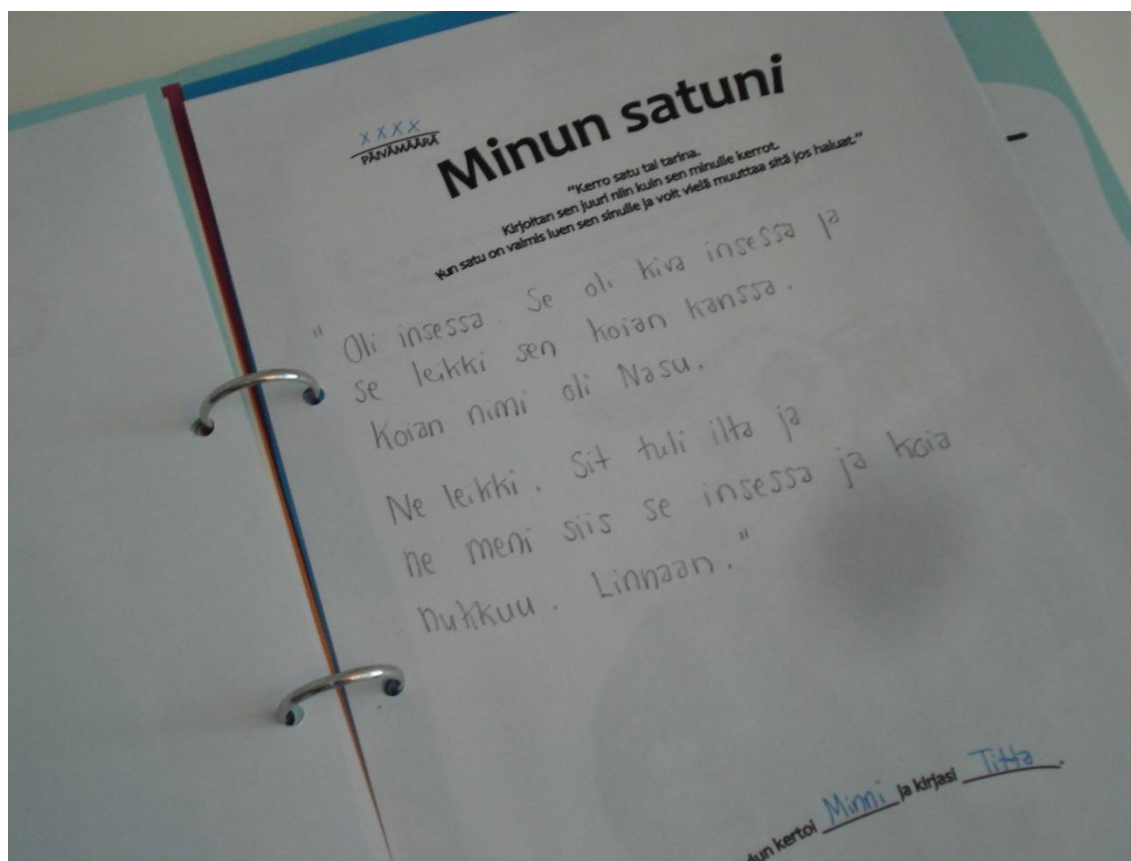 xxxx
PÄIVÄMÄÄRÄ
Minun satuni
"Kerro satu tai tarina.
Kirjoitan sen juuri niin kuin sen minulle kerrot.
Kun satu on valmis luen sen sinulle ja voit vielä muuttaa sitä jos haluat."
" Oli insessa. Se oli kiva insessa ja
se leikki sen koian kanssa.
Koian nimi oli Nasu.
Ne leikki. Sit tuli ilta ja
ne meni siis se insessa ja koia
nukkuu. Linnaan."
kertoi Minni ja kirjasi Titta.